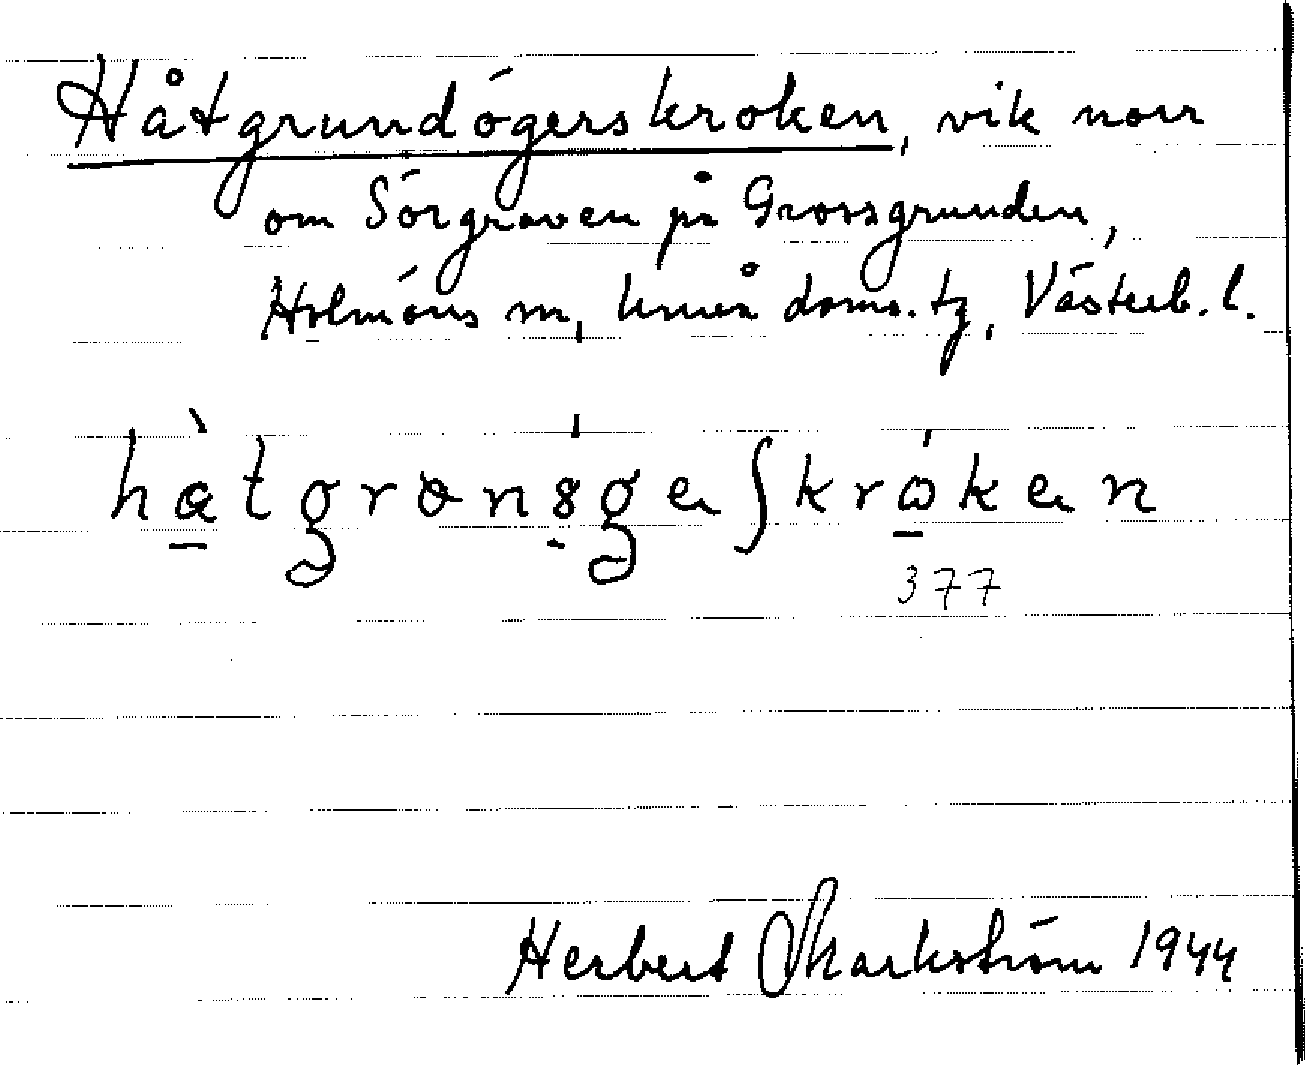 Håtgrundögerskroken, vik norr
om Sörgraven på Grossgrunden,
Holmöns sn, Umeå doms. tg, Västerb. l.
377
Herbert Markström 1944